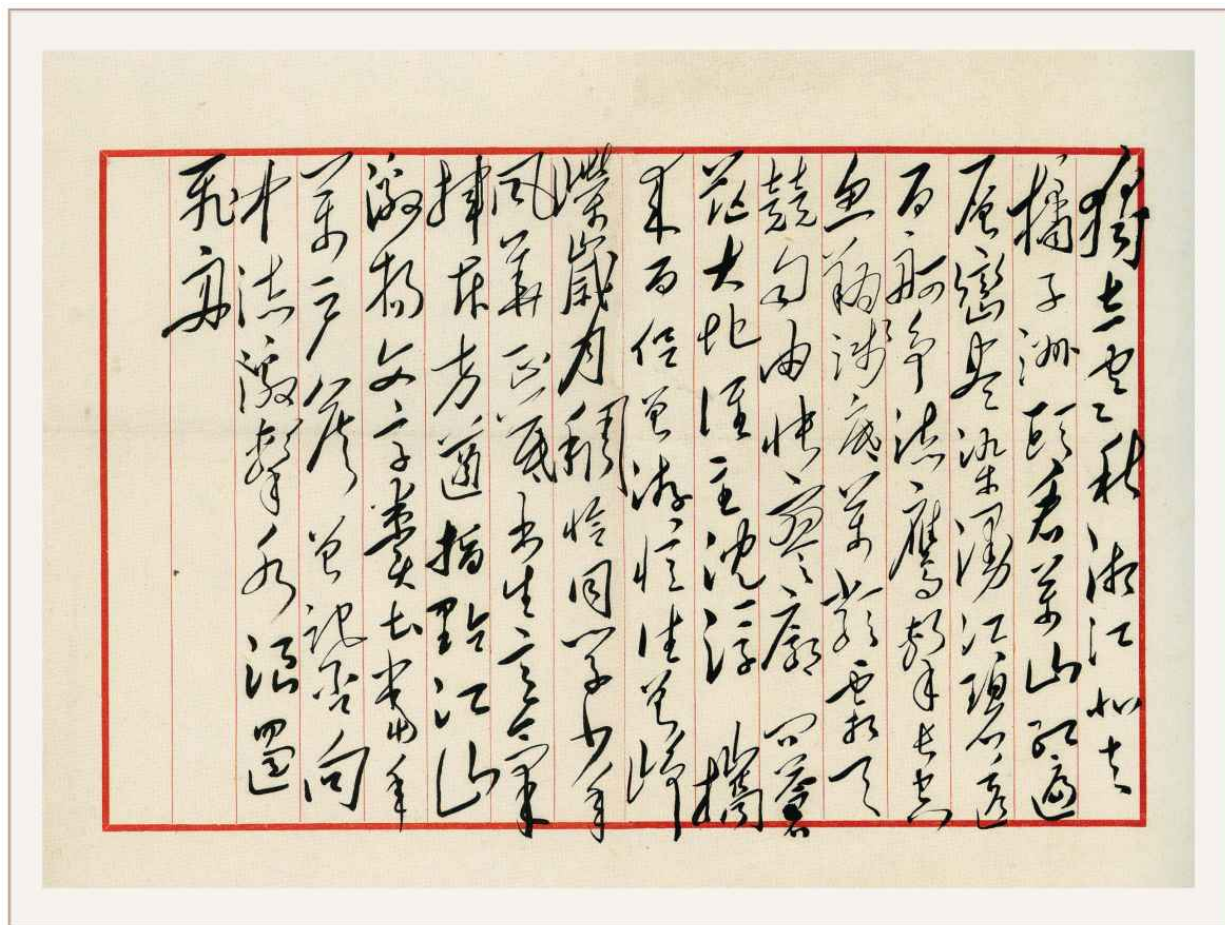 獨立寒秋湘江北去
橘子洲頭看萬山紅遍
層巒盡染漫江碧透
百舸爭流鷹擊長空
魚翔淺底萬類霜天
競自由悵寥廓 問蒼
茫大地誰主沈浮 攜
來百侣曾游憶往昔崢
嶸歲月稠恰同學少年
風華正茂書生意氣
揮斥方遒指點江山
激揚文字糞土當年
萬户侯 曾記否向
中流激擊水浪遏
飛舟